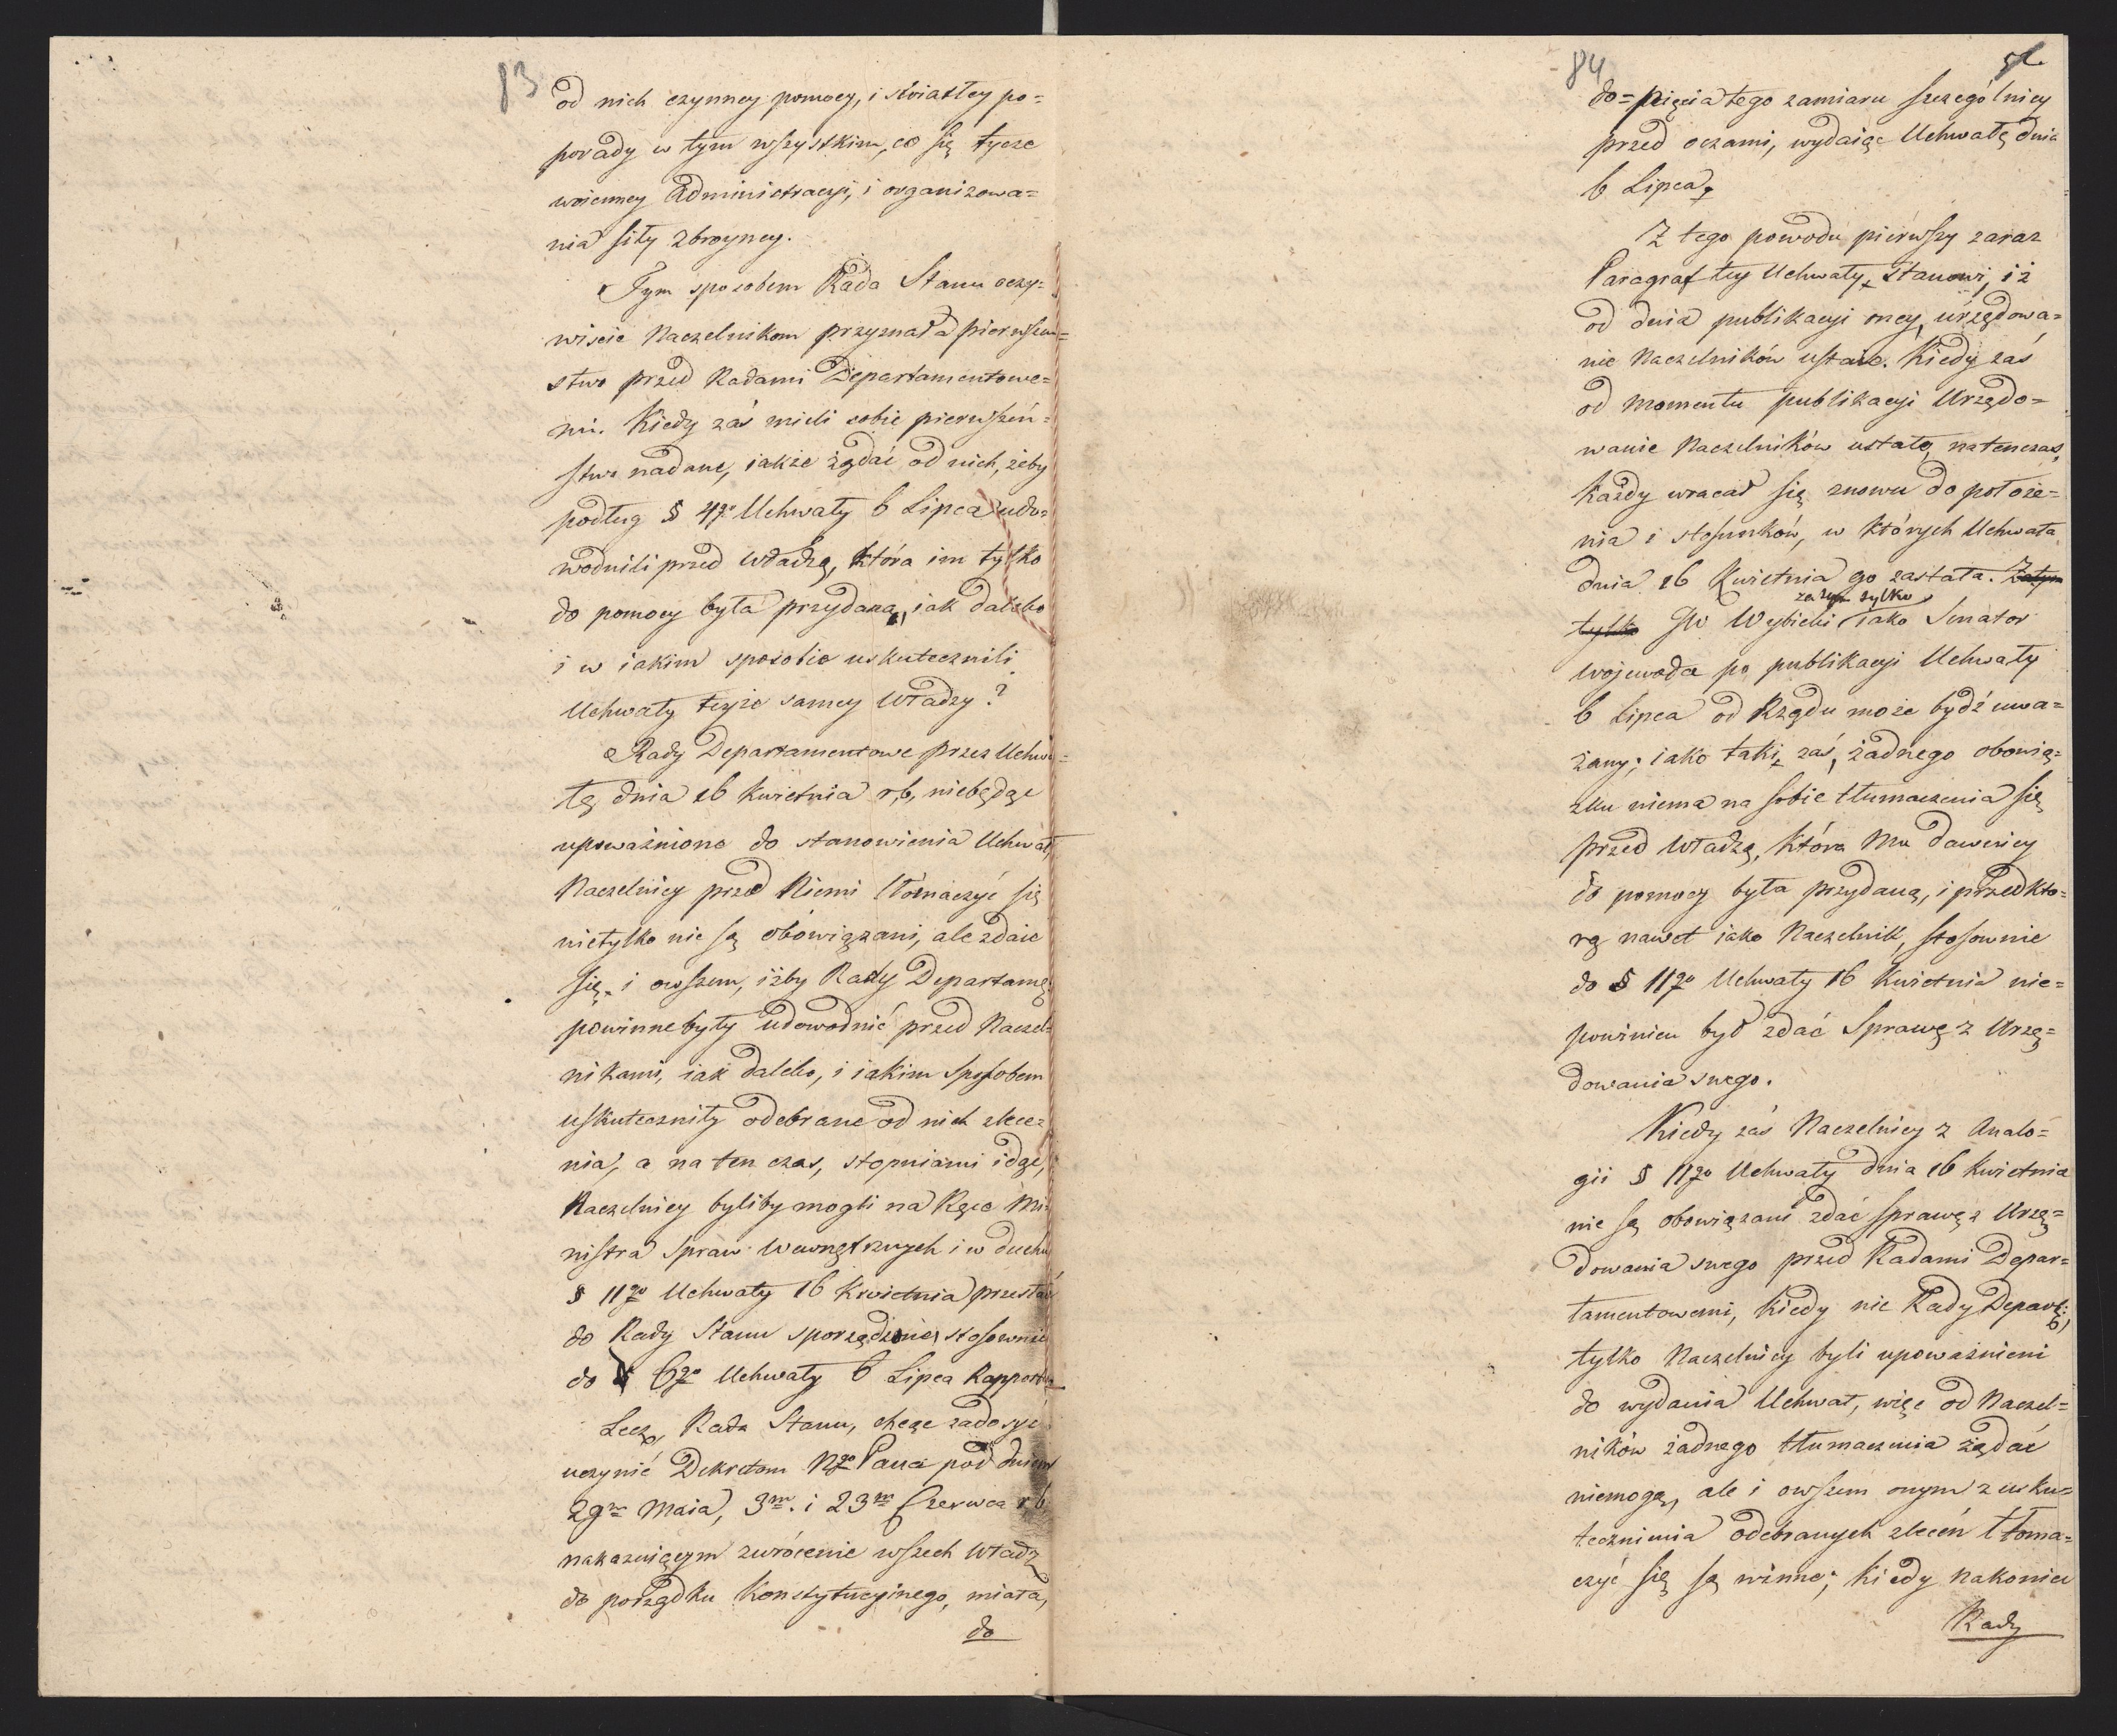 83
od nich czynney pomocy, i światłey po=
porady w tym wszystkim, co się tycze
woienney Administracyi, i organizowa=
nia siły zbroyney.
Tym sposobem Rada Stanu oczy=
wiscie Naczelnikom przyznała pierwszeń=
stwo przed Radami Departamentowe=
mi. Kiedy zaś mieli sobie pierwszeń=
stwo nadane, iakże żądać od nich, żeby
podług § 4go Uchwały 6 Lipca udo=
wodnili przed władzą, która im tylko
do pomocy była przydana, iak daleko
i w iakim sposobie uskutecznili
Uchwały teyże samey Władzy?
Rady Departamentowe przez Uchwa=
łę dnia 16 Kwietnia r,b, niebędąc
upoważnione do stanowienia Uchwał,
Naczelnicy przed Niemi tłómaczyć się
nietylko nie są obowiązani, ale zdaie
się, i owszem, iżby Rady Departame
powinne były udowodnić przed Naczel=
nikami, iak daleko, i iakim sposobem
uskuteczniły odebrane od nich zlece=
nia, a na ten czas, stopniami idąc,
Naczelnicy byliby mogli na Ręce Mi=
nistra Spraw Wewnętrznych i w duchu
§ 11go Uchwały 16 Kwietnia przesłać
do Rady Stanu sporządzone, stosownie
do § 6go Uchwały 6 Lipca Rapporta
Lecz, Rada Stanu, chcąc zadosyć
uczynić Dekretom Ngo Pana pod dniem
29m Maia, 3m. i 23m Czerwca r b
nakazuiącym zwrócenie wszech Władz
do porządku Konstytucyinego, miała,
do
84
do=pięcia tego zamiaru szczególniey
przed oczami, wydaiąc Uchwałę dnia
6 Lipca,
Z tego powodu piérwszy zaraz
Paragraf tey Uchwały, stanowi, iż
od dnia publikacyi oney, urzędowa=
nie Naczelników ustaie. Kiedy zaś
od momentu publikacyi Urzędo=
wanie Naczelników ustało, natenczas,
każdy wracał się znowu do położe=
nia i stosunków, w których Uchwała
dnia 16 Kwietnia go zastała. Zatym
zatym tylko
tylko JW Wybicki iako Senator
Wojewoda po publikacyi Uchwały
6 Lipca od Rządu może bydź uwa=
żany; iako taki, zaś, żadnego obowią=
zku niema na sobie tłumaczenia się
przed Władzą, która Mu dawniey
do pomocy była przydaną, i przed któ=
rą nawet iako Naczelnik, stosownie
do § 11go Uchwały 16 Kwietnia nie=
powinien był zdać Sprawę z Urzę=
dowania swego.
Kiedy zaś Naczelnicy z Analo=
gii § 11go Uchwały dnia 16 Kwietnia
nie są obowiązani zdać sprawę z Urzę=
dowania swego przed Radami Depar=
tamentowemi, kiedy nie Rady Depart:
tylko Naczelnicy byli upoważnieni
do wydania Uchwał, więc od Naczel=
ników żadnego tłumaczenia żądać
niemogą, ale i owszem onym z usku=
tecznienia odebranych zleceń tłoma=
czyć się są winne; kiedy nakoniec
Rady